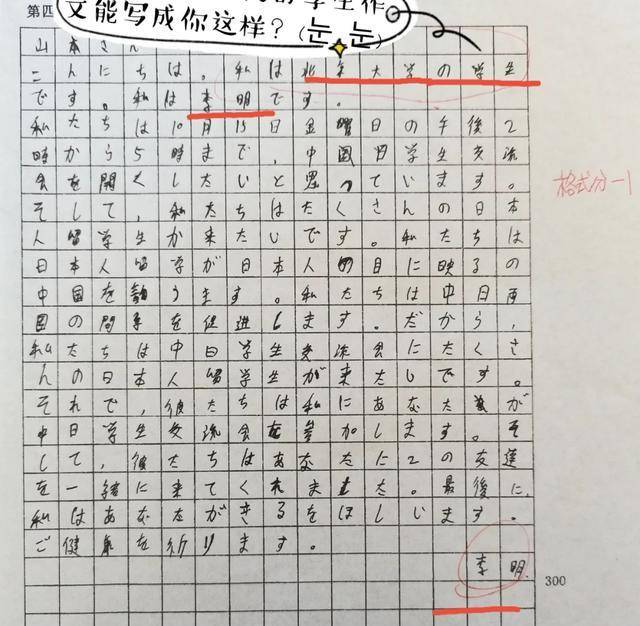 第四
学生作
文能写成你这样？(눈_눈)
山本さん
こんにちは。私は北京大学の学生
です。私は李明です。
私たちは10月15日金曜日の午後2
時から5時まで，中国日学生交流
会を開くしたいと思っています。
そして，私たちはたくさんの日本
人留学生が来たいです。私たちは
日本人留学が日本人の目に映るの
中国を誘う生す。私たちは中日両
国の関系を促進します。だから，
私たちは中日学生交流会にたくさ
んの日本人留学生が来たいです。
それで，彼たちは私にあなたが
中日学生交流会を参加します。そ
して，彼たちはあなたに2の友達
を一緒に来てくれました。最後に，
私はあなたがきるをほしいます。
ご健康を祈ります。
李明
300
格式分-1